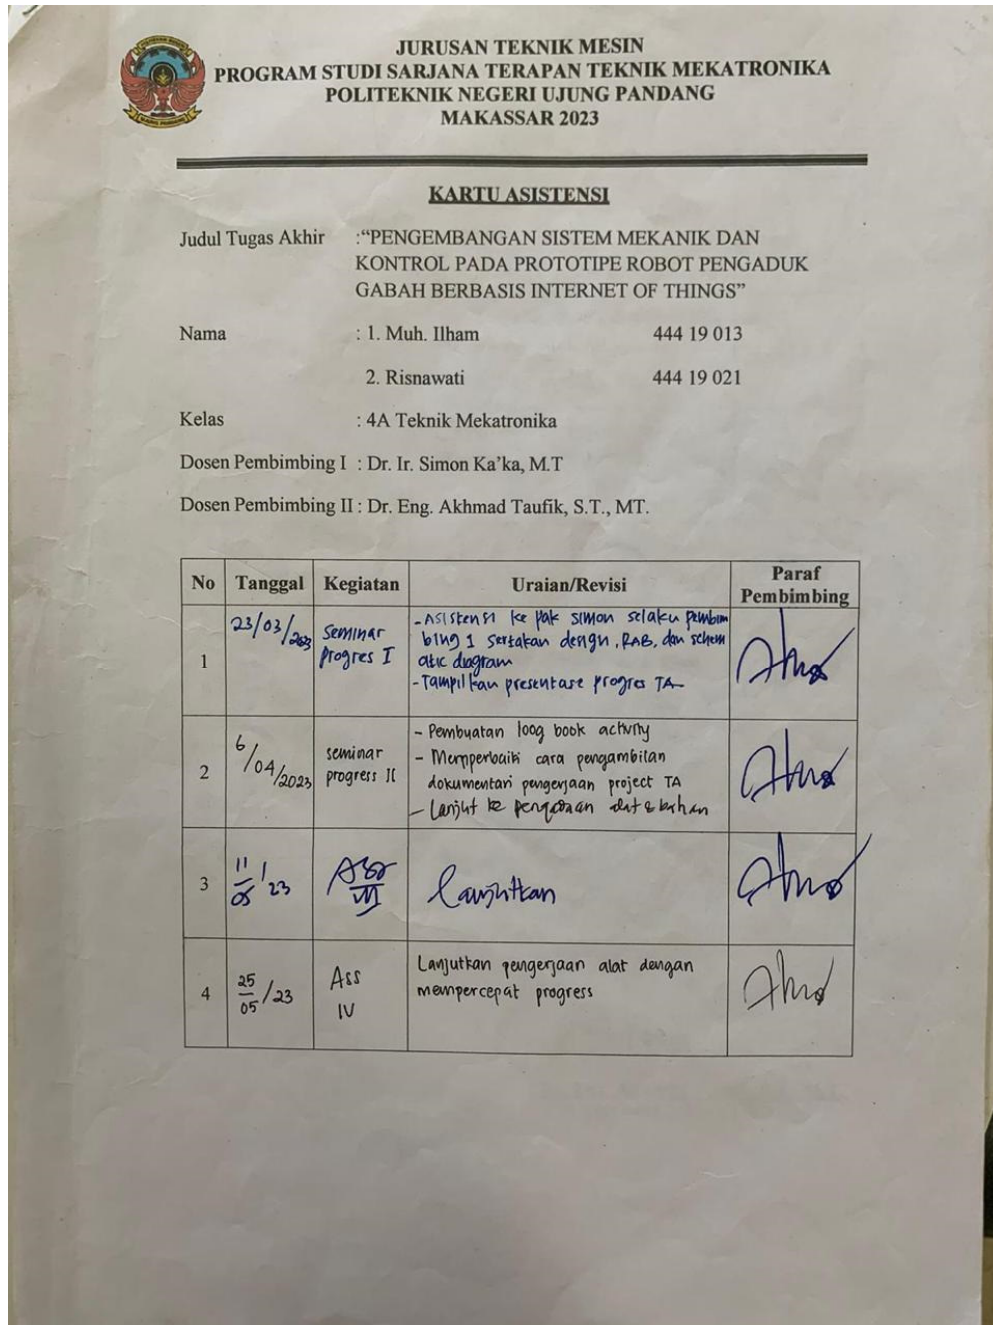 JURUSAN TEKNIK MESIN
PROGRAM STUDI SARJANA TERAPAN TEKNIK MEKATRONIKA
POLITEKNIK NEGERI UJUNG PANDANG
MAKASSAR 2023
KARTU ASISTENSI
Judul Tugas Akhir :“PENGEMBANGAN SISTEM MEKANIK DAN
KONTROL PADA PROTOTIPE ROBOT PENGADUK
GABAH BERBASIS INTERNET OF THINGS”
Nama : 1. Muh. Ilham 444 19 013
2. Risnawati 444 19 021
Kelas : 4A Teknik Mekatronika
Dosen Pembimbing I : Dr. Ir. Simon Ka’ka, M.T
Dosen Pembimbing II : Dr. Eng. Akhmad Taufik, S.T., MT.
No Tanggal Kegiatan Uraian/Revisi Paraf Pembimbing
1
23/03/2023
Seminar
Progres I
- Asistensi ke pak simon selaku pembim
bing 1 sertakan design, RAB, dan schem
atic diagram
- Tampilkan presentase progres TA
2
6/04/2023
seminar
progress II
- Pembuatan loog book activity
- Memperbaiki cara pengambilan
dokumentari pengerjaan project TA
- Lanjut ke pengadaan alat & bahan
3
11/05/23
III
Lanjutkan
4
25/05/23
Ass
IV
Lanjutkan pengerjaan alat dengan
mempercepat progress